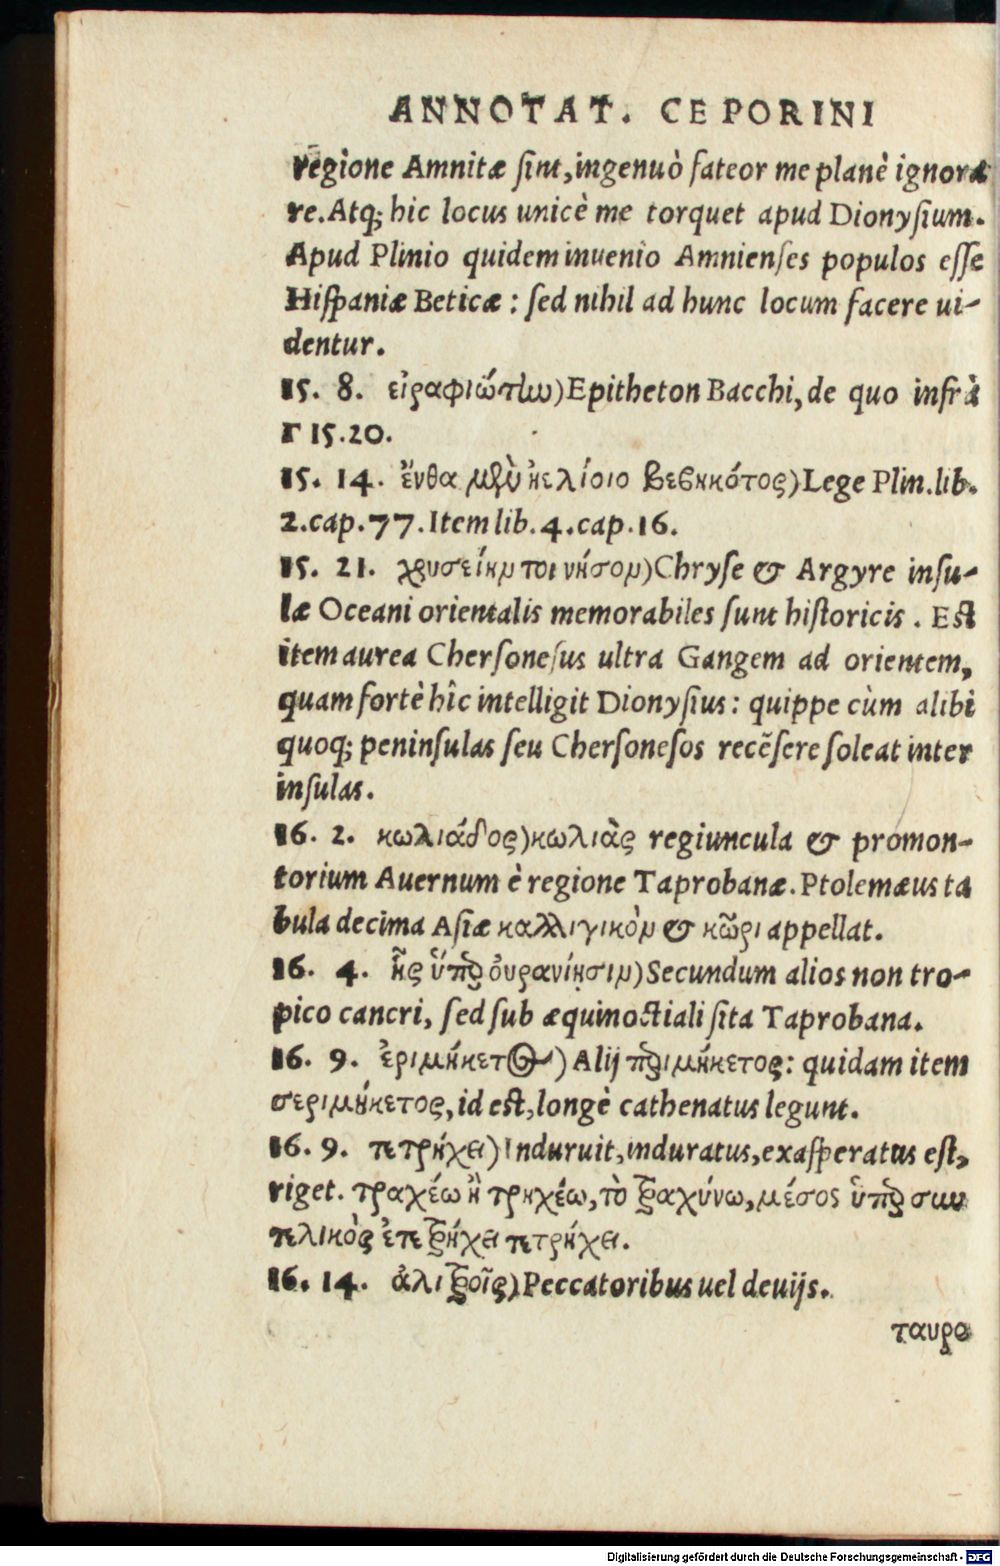 ANNOTAT. CEPORINI
regione Amnitæ ſint, ingenuò fateor me planè ignora
re. Atq; hic locus unicè me torquet apud Dionyſium.
Apud Plinio quidem inuenio Amnienſes populos eſſe
Hiſpaniæ Beticæ: ſed nihil ad hunc locum facere ui-
dentur.
15. 8. εἰραφιώτlω) Epitheton Bacchi, de quo infrà
Γ 15.20.
15. 14. ἔνθα μὲν ἠελίοιο βεβηκότος) Lege Plin. lib.
2. cap. 77. Item lib. 4. cap. 16.
15. 21. χρυσείημ τοι νήσομ) Chryſe & Argyre inſu-
læ Oceani orientalis memorabiles ſunt hiſtoricis. Eſt
item aurea Cherſoneſus ultra Gangem ad orientem,
quam fortè hîc intelligit Dionyſius: quippe cùm alibi
quoq; peninſulas ſeu Cherſoneſos recẽſere ſoleat inter
inſulas.
16. 2. κωλιάδος) κωλιὰς regiuncula & promon-
torium Auernum è regione Taprobanæ. Ptolemæus ta
bula decima Aſiæ καλλιγικὸμ & κῶρι appellat.
16. 4. ἧς ὕπὸ οὐρανίῃσιμ) Secundum alios non tro-
pico cancri, ſed ſub æquinoctiali ſita Taprobana.
16. 9. ἐριμήκετος) Alij πϖιμήκετος: quidam item
σεριμήκετος, id eſt, longè cathenatus legunt.
16. 9. τετρήχει) Induruit, induratus, exaſperatus eſt,
riget. τραχέω ἢ τρηχέω, τὸ τραχύνω, μέσος ὑπὸρ συν
τελικὸς ἐπετρήχει τετρήχει.
16. 14. ἀλιτροῖς) Peccatoribus uel deuijs.
ταυρο
Digitalisierung gefördert durch die Deutsche Forschungsgemeinschaft - DFG